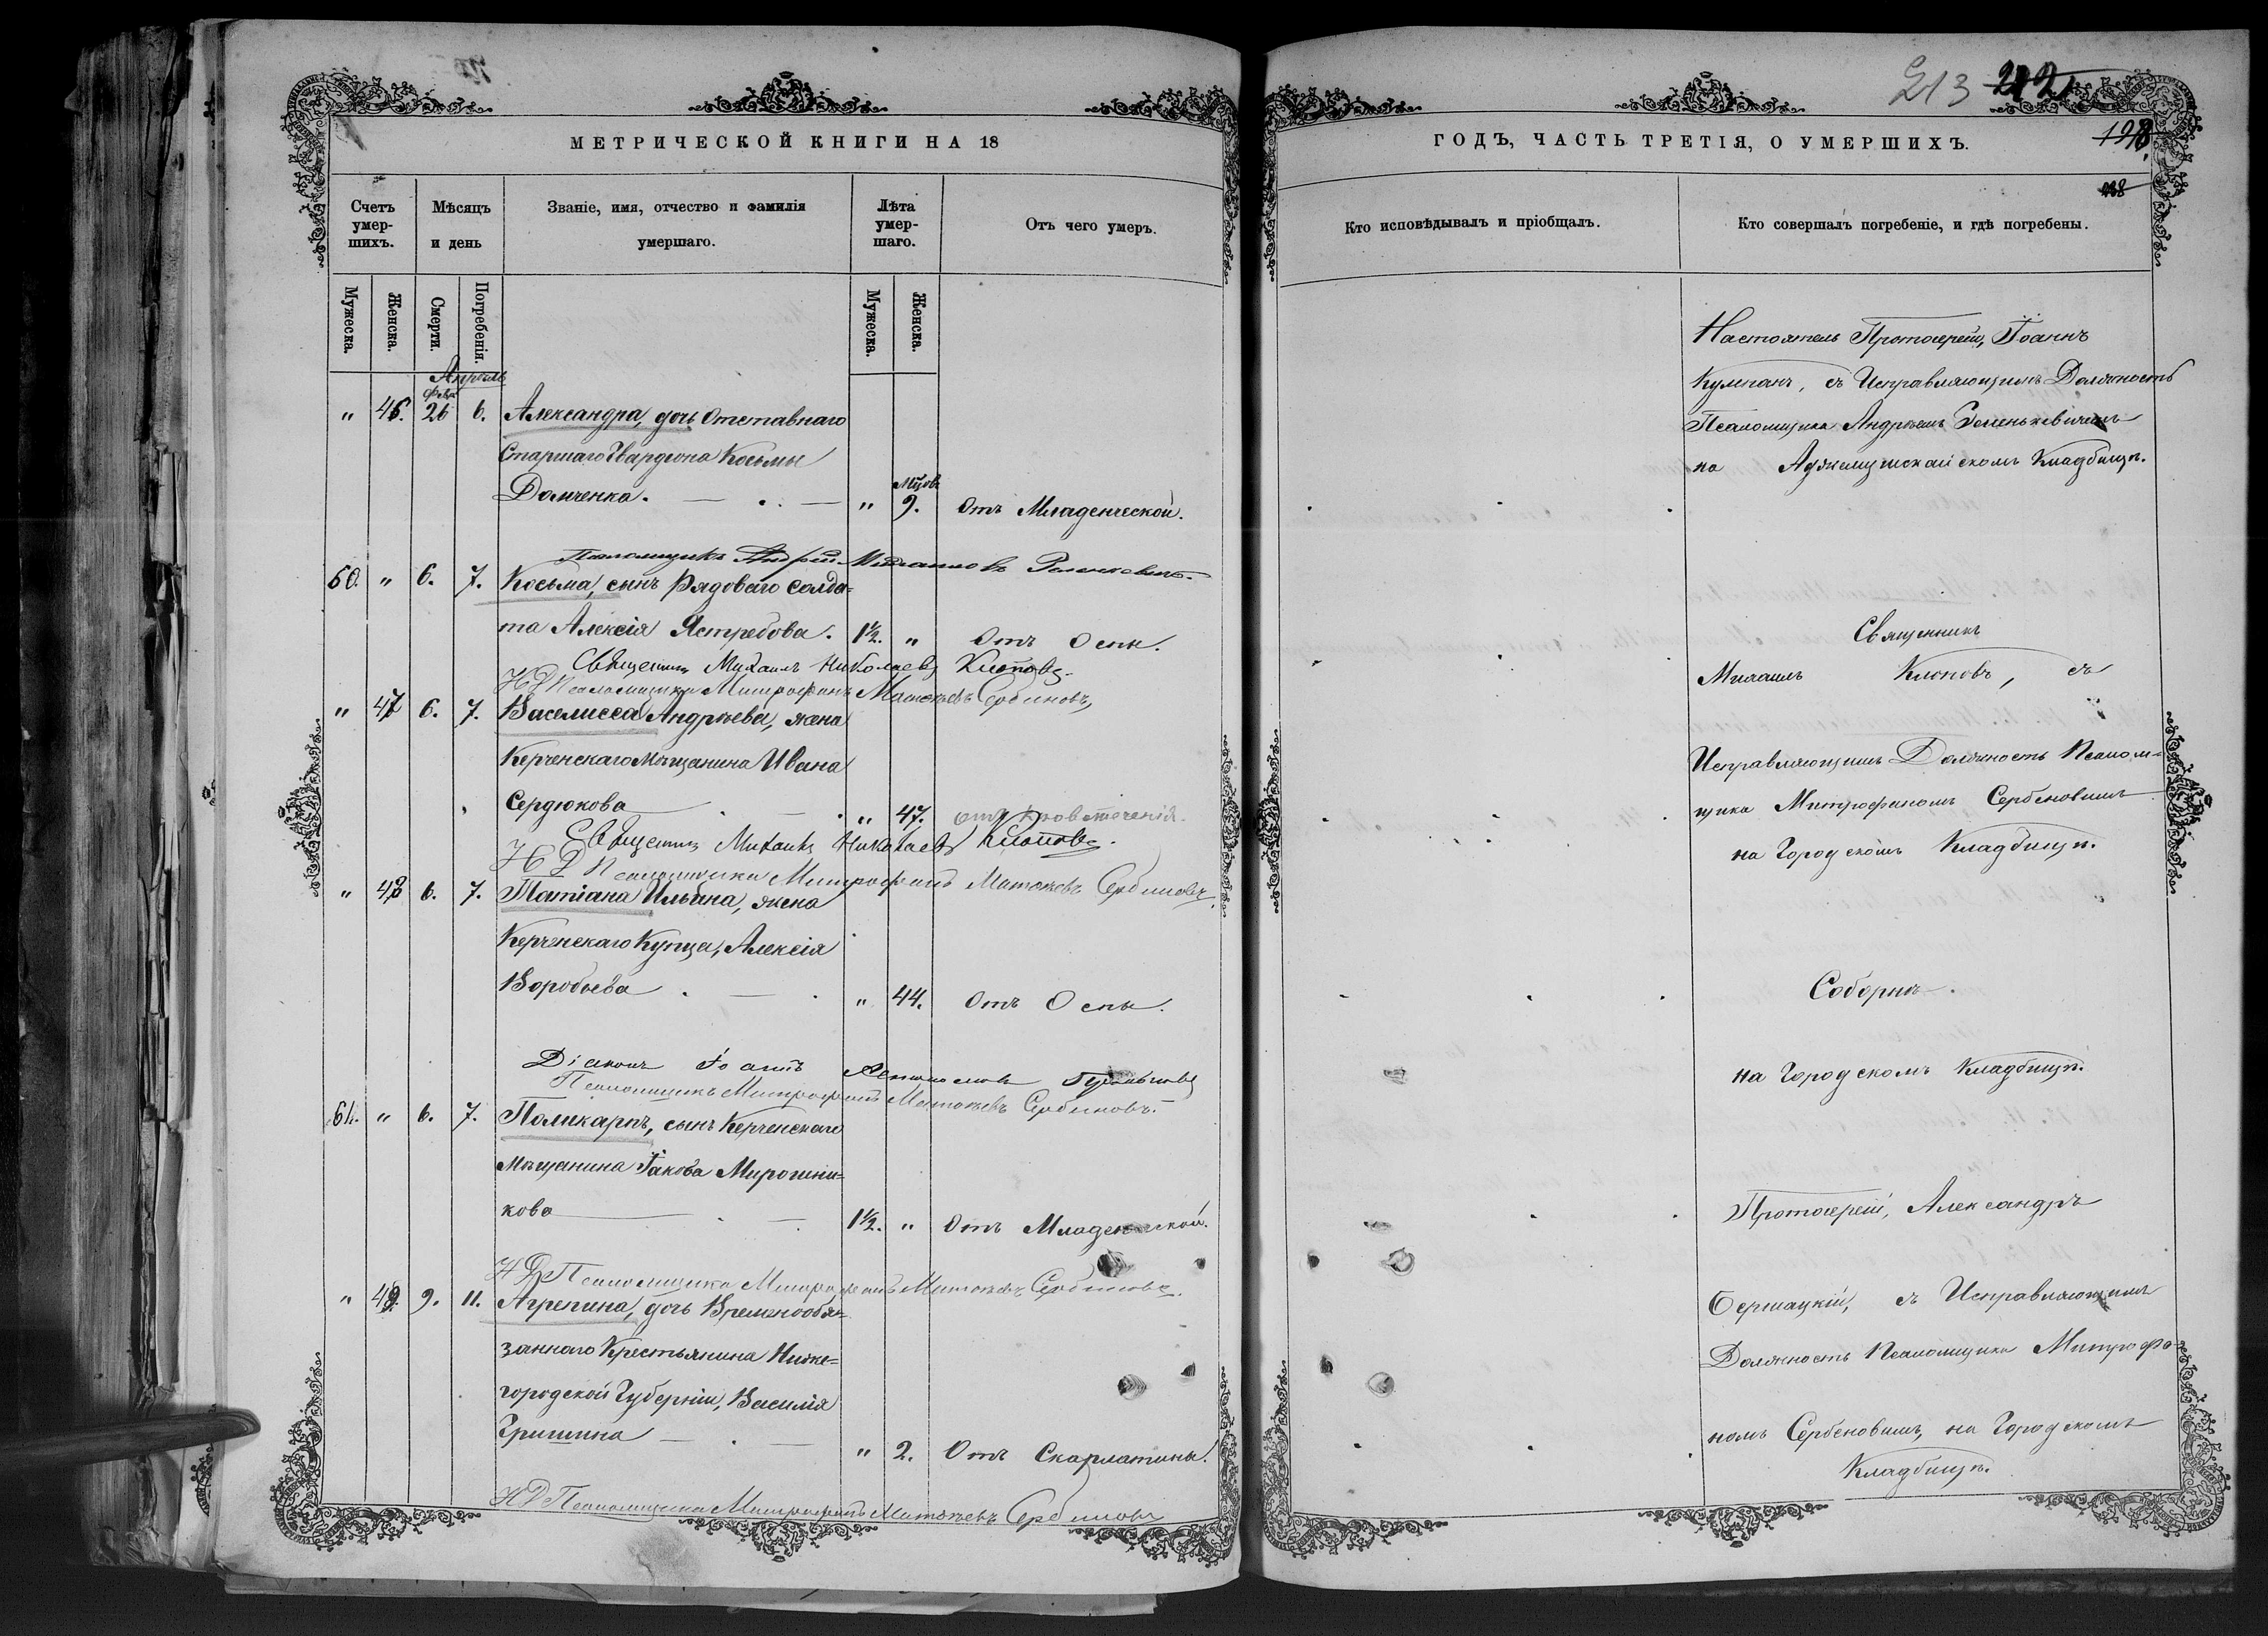 МЕТРИЧЕСКОЙ КНИГИ НА 18
Счетъ умер-шихъ.
Мѣсяцъ и день
Званіе, имя, отчество и фамилія умершаго.
Лѣта умер-шаго.
Отъ чего умеръ.
Мужеска.
Женска.
Смерти.
Погребенія.
Мужеска.
Женска.
Апрель
" 46. 26 6. Александра, дочь Отставнаго
Старшаго Гвардіона Косьмы
Домченка. " 9. Отъ Младенческой.
60. " 6. 7. Косьма, сынъ Рядоваго Солда=
та Алексія Ястребова. 1½. " Отъ Оспы.
Священникъ Михаилъ Николаевъ Клоповъ.
И Д Псаломщика Митрофанъ Матвѣевъ Сербиновъ,
" 47 6. 7. Василисса Андреева, жена
Керченскаго Мѣщанина Ивана
Сердюкова " 47. отъ кровотеченія.
Священникъ Михаилъ Николаевъ Клоповъ.
И Д Псаломщика Митрофанъ Матвѣевъ Сербиновъ.
" 48 6. 7. Татіана Ильина, жена
Керченскаго Купца, Алексія
Воробьева " 44. Отъ Оспы.
Діаконъ Іоаннъ
Псаломщикъ Митрофанъ Матвѣевъ Сербиновъ.
61. " 6. 7. Поликарпъ, сынъ Керченскаго
Мѣщанина Іакова Мирошни=
кова 1½. " Отъ Младенческой.
И Д Псаломщика Митрофанъ Матвѣевъ Сербиновъ.
" 49. 9. 11. Агрепина, дочь Временнообя=
заннаго Крестьянина Ниже=
городской Губерніи, Василія
Гришина " 2. Отъ Скарлатины.
И Д Псаломщика Митрофанъ Матвѣевъ Сербиновъ
213
198
ГОДЪ, ЧАСТЬ ТРЕТІЯ, О УМЕРШИХЪ.
Кто исповѣдывалъ и пріобщалъ.
Кто совершалъ погребеніе, и гдѣ погребены.
Настоятель Протоіерей, Іоаннъ
Кумпанъ, съ Исправляющимъ Должность
Псаломщика Андреемъ
на Аджимушкайскомъ Кладбищѣ.
Священникъ
Михаилъ Клоповъ, съ
Исправляющимъ Должность Псалом=
щика Митрофаномъ Сербеновымъ
на Городскомъ Кладбищѣ.
Соборнѣ.
на Городскомъ Кладбищѣ.
Протоіерей, Александръ
Бершацкій, съ Исправляющимъ
Должность Псаломщика Митрофа-
номъ Сербеновымъ, на Городскомъ
Кладбищѣ.